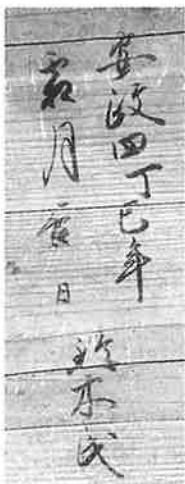 安政四丁巳年
霜月吉日
鈴木氏